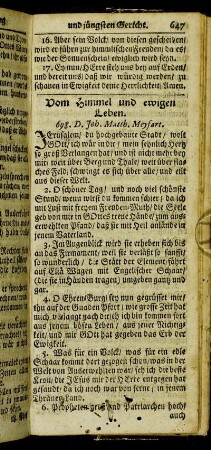 und jüngsten Gericht. 647
16. Aber sein Volck von diesen geschieden/
wird er führen zur himmlischen Freuden/ da es
wie der Sonnenschein/ ewiglich wird seyn.
17. Ey nun/ HErre steh uns bey auf Erden/
und bereit uns/ daß wir würdig werden/ zu
schauen in Ewigkeit deine Herrlichkeit/ Amen.
Vom Himmel und ewigen
Leben.
698. D. Joh. Matth. Meyfart.
JErusalem/ du hochgebaute Stadt/ wolt
GOtt/ ich wär in dir/ mein sehnlich Hertz
so groß Verlangen hat/ und ist nicht mehr bey
mir weit über Berg und Thale/ weit über flaches
Feld/ schwingt es sich über alle/ und eilt
aus dieser Welt.
2. O schöner Tag/ und noch viel schönste
Stund/ wenn wirst du kommen schier/ da ich
mit Lust und freyem Freuden-Muth/ die Seele
geb von mir in GOttes treue Hände/ zum auserwehlten
Pfand/ daß sie mit Heil anlände in
jenem Vaterland.
3. Im Augenblick wird sie erheben sich bis
an das Firmament/ weil sie verläßt so sanft/
so wunderlich/ die Stätt der Element/ fährt
auf Eliä Wagen mit Engelischer Schaar/
die sie in Händen tragen/ umgeben gantz und
gar.
4. O Ehren-Burg/ sey nun gegrüsset mir/
thu auf der Gnaden Pfort/ wie grosse Zeit hat
mich verlanget nach dir/ eh ich bin kommen fort
aus jenem bösen Leben/ aus jener Nichtigkeit/
und mir GOtt hat gegeben das Erb der
Ewigkeit.
5. Was für ein Volck/ was für ein edle
Schaar kommt dort gezogen schon/ was in der
Welt von Auserwehlten war/ seh ich die beste
Kron/ die JEsus mir der HErr entgegen hat
gesandt/ da ich noch war von ferne/ in jenem
Thränen-Land.
6. Propheten groß und Patriarchen hoch/
auch